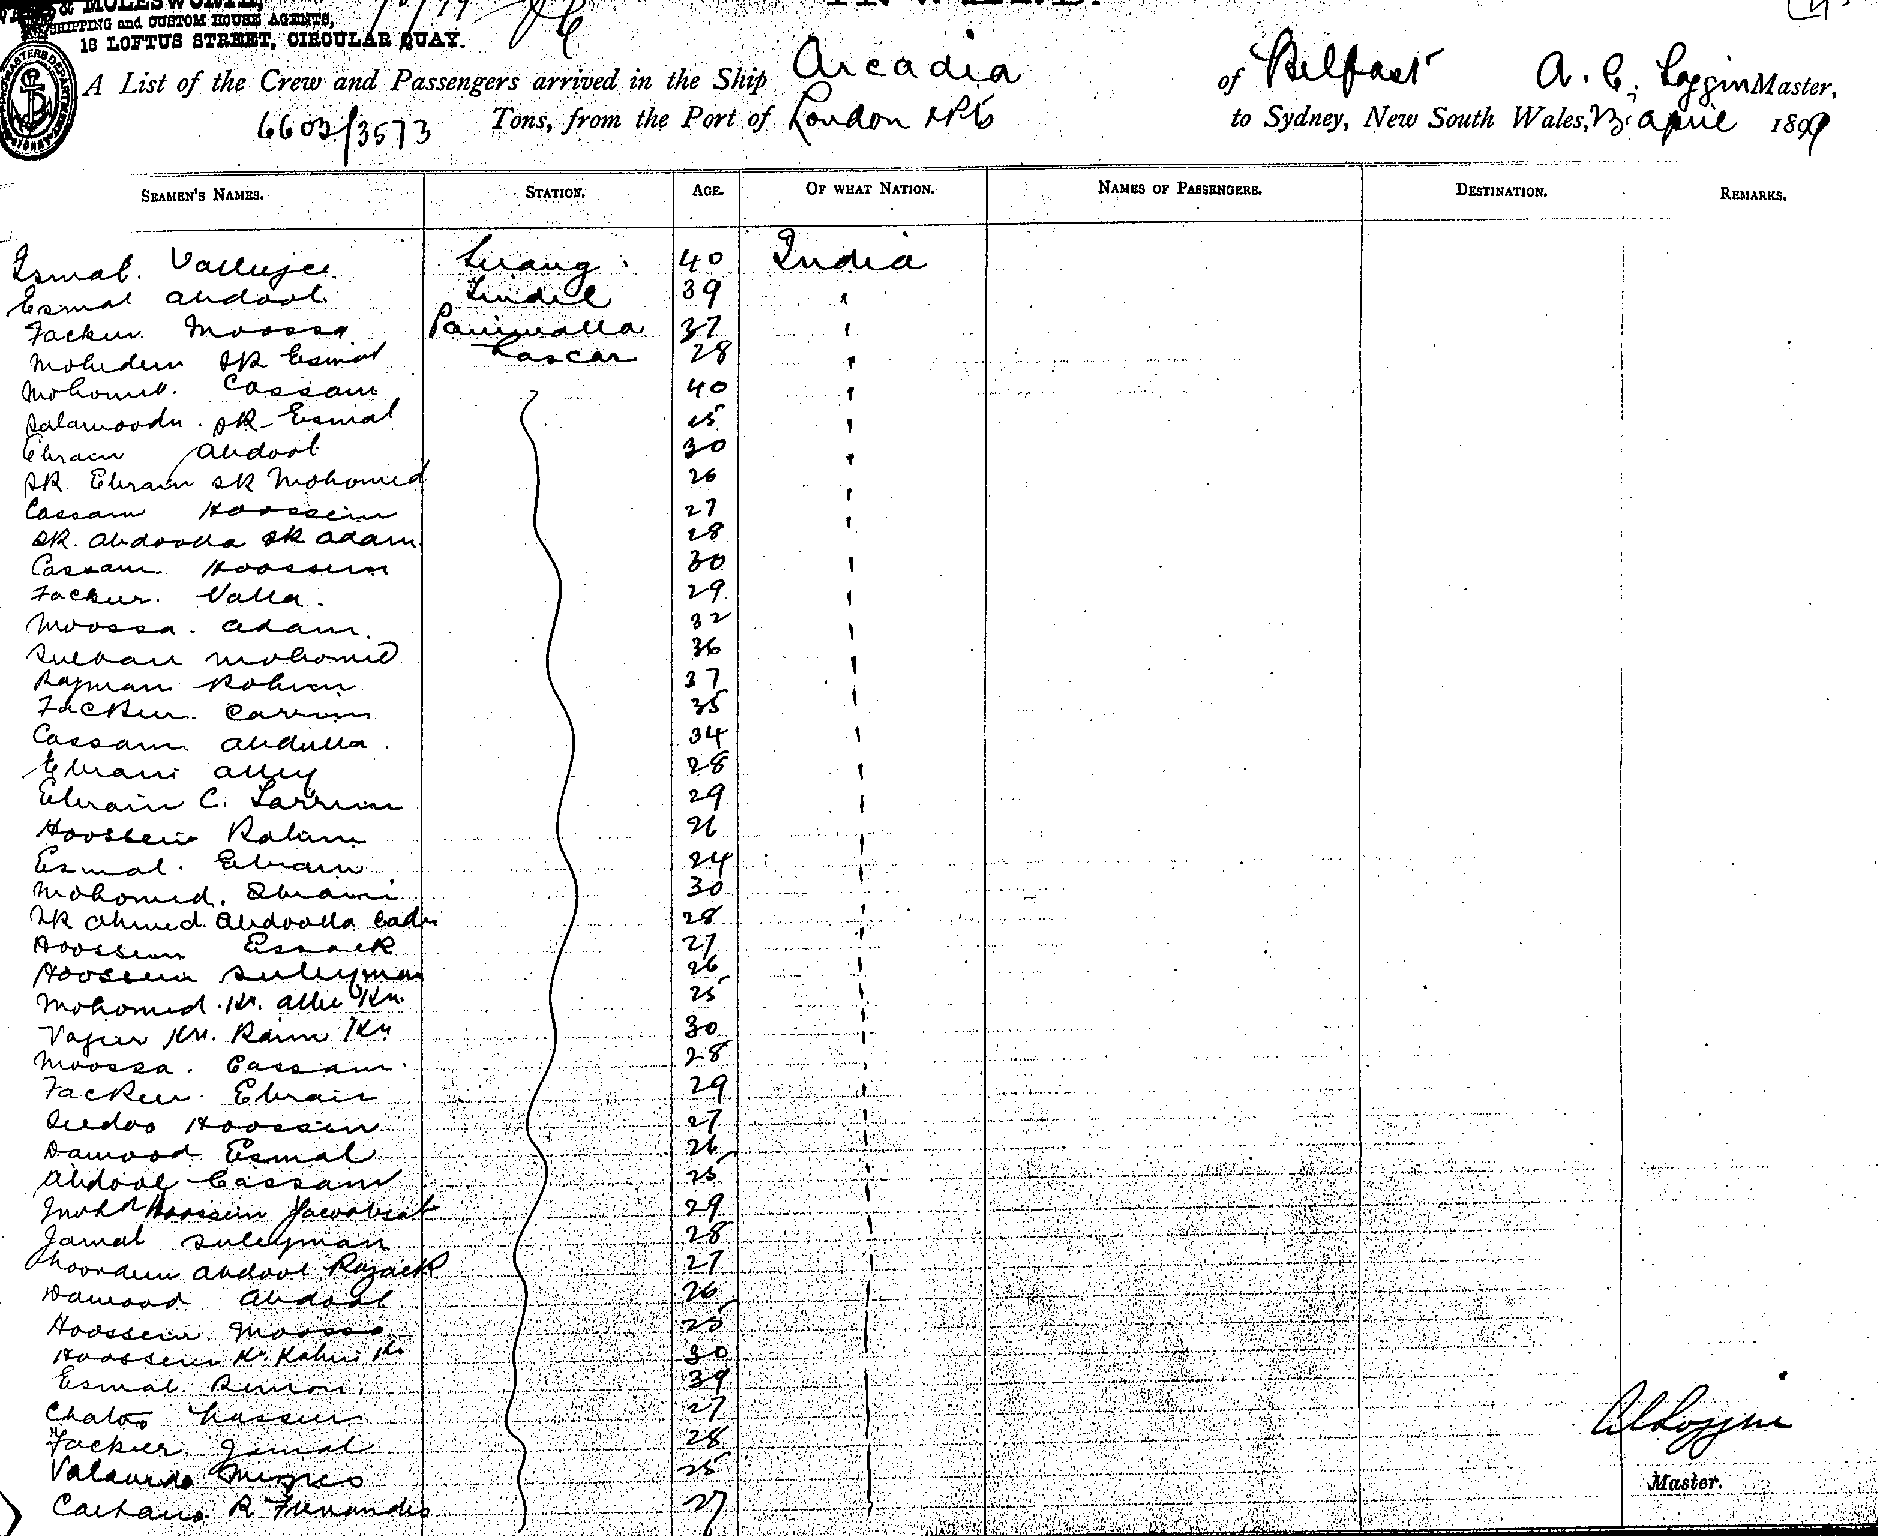 & MOLESWORTH,
SHIPPING and CUSTOM HOUSE AGENTS,
18 LOFTUS STREET, CIRCULAR QUAY.
A List of the Crew and Passengers arrived in the Ship Arcadia of Belfast A. C. Loggin Master,
6603/3573 Tons, from the Port of London & Pts to Sydney, New South Wales, 13 April 1899
SEAMEN'S NAMES. STATION. AGE. OF WHAT NATION. NAMES OF PASSENGERS. DESTINATION. REMARKS.
Esmal. Vallejee Serang 40 India
Esmal Abdool Tindel 39 "
Facker Moossa Paniwalla 37 "
Mohedeen Sk Esmal Lascar 28 "
Mohomed. Cassam 40 "
Salamoodn. Sk Esmal 25 "
Ebram Abdool 30 "
Sk Ebram Sk Mohomed 26 "
Cassam Hoossein 27 "
Sk. Abdoolla Sk Adam 28 "
Cassam Hoossein 30 "
Facker. Valla. 29 "
Moossa. Adam. 32 "
Suleman Mohomed 36 "
Rajman Rohim 37 "
Facker. Carrim 35 "
Cassam Abdulla. 34 "
Ebram Alley 28 "
Ebram C. 29 "
Hoossein Rahim 26 "
Esmal. Ebram 24 "
Mohomed. Ebram 30 "
Sk Ahmed Abdoolla Cader 28 "
Hoossein Essack 27 "
Hoossein Suleyman 26 "
Mohomed. Kn. Allie Kn. 25 "
Vajeer Kn. Ram Kn 30 "
Moossa. Cassam. 28 "
Facker. Ebram 29 "
Seedoo Hoossein 27 "
Dawood Esmal 26 "
Abdool Cassam 25 "
Hoossein 29 "
Jamal Suleyman 28 "
Noordeen Abdool Rajack 27 "
Dawood Abdool 26 "
Hoossein Moossa 25 "
Hoossein Kn. Rahim Kn 30 "
Esmal 39 "
27 "
Facker Jamal 28 "
25 "
Caetano R Fernandes 27 "
A C Loggin
Master.